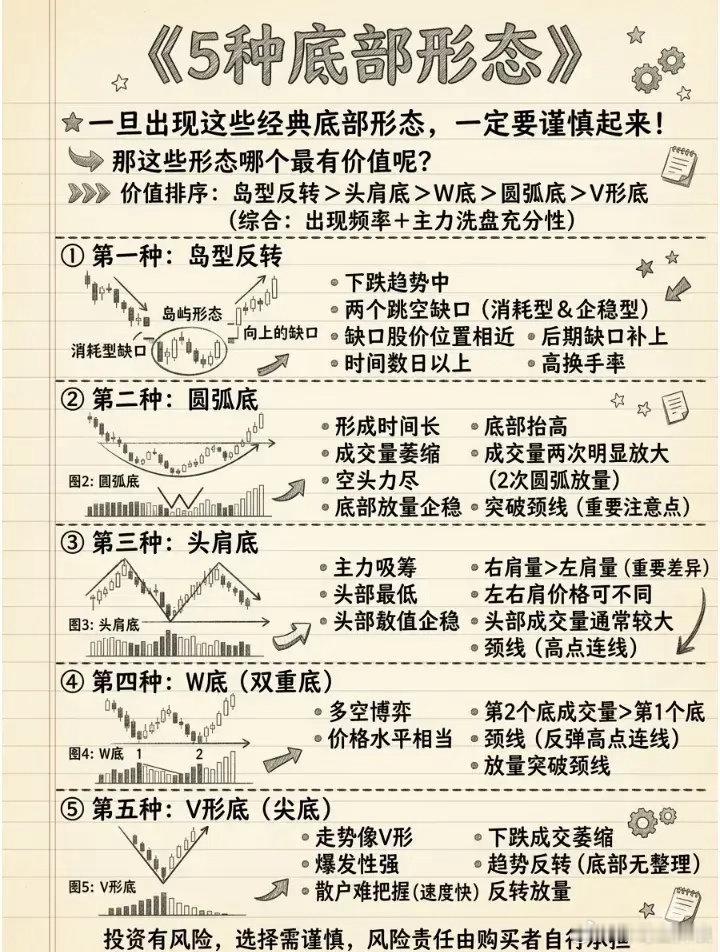 《5种底部形态》
一旦出现这些经典底部形态，一定要谨慎起来！
那这些形态哪个最有价值呢？
价值排序：岛型反转＞头肩底＞W底＞圆弧底＞V形底
（综合：出现频率＋主力洗盘充分性）
① 第一种：岛型反转
岛屿形态
消耗型缺口
向上的缺口
• 下跌趋势中
• 两个跳空缺口（消耗型＆企稳型）
• 缺口股价位置相近 • 后期缺口补上
• 时间数日以上 • 高换手率
② 第二种：圆弧底
图2: 圆弧底
• 形成时间长 • 底部抬高
• 成交量萎缩 • 成交量两次明显放大
• 空头力尽 （2次圆弧放量）
• 底部放量企稳 • 突破颈线（重要注意点）
③ 第三种：头肩底
图3: 头肩底
• 主力吸筹 • 右肩量＞左肩量（重要差异）
• 头部最低 • 左右肩价格可不同
• 头部敾值企稳 • 头部成交量通常较大
• 颈线（高点连线）
④ 第四种：W底（双重底）
图4: W底 1 2
• 多空博弈 • 第2个底成交量＞第1个底
• 价格水平相当 • 颈线（反弹高点连线）
• 放量突破颈线
⑤ 第五种：V形底（尖底）
图5: V形底
• 走势像V形 • 下跌成交萎缩
• 爆发性强 • 趋势反转（底部无整理）
• 散户难把握（速度快） 反转放量
投资有风险，选择需谨慎，风险责任由购买者自行承担